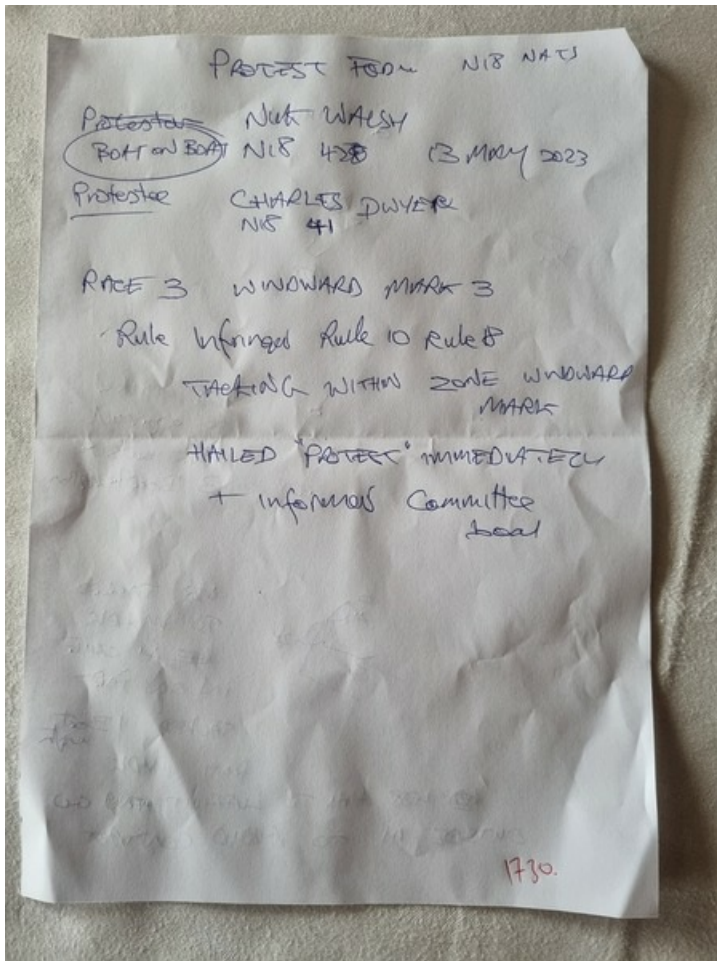 PROTEST FORM N18 NATS
Protestor Nick WALSH
BOAT ON BOAT N18 428 13 MAY 2023
Protestee CHARLES DWYER
N18 41
RACE 3 WINDWARD MARK 3
Rule Infringed Rule 10 Rule 18
TACKING WITHIN ZONE WINDWARD
MARK
HAILED "PROTEST" IMMEDIATELY
+ informed Committee
boat
1730.